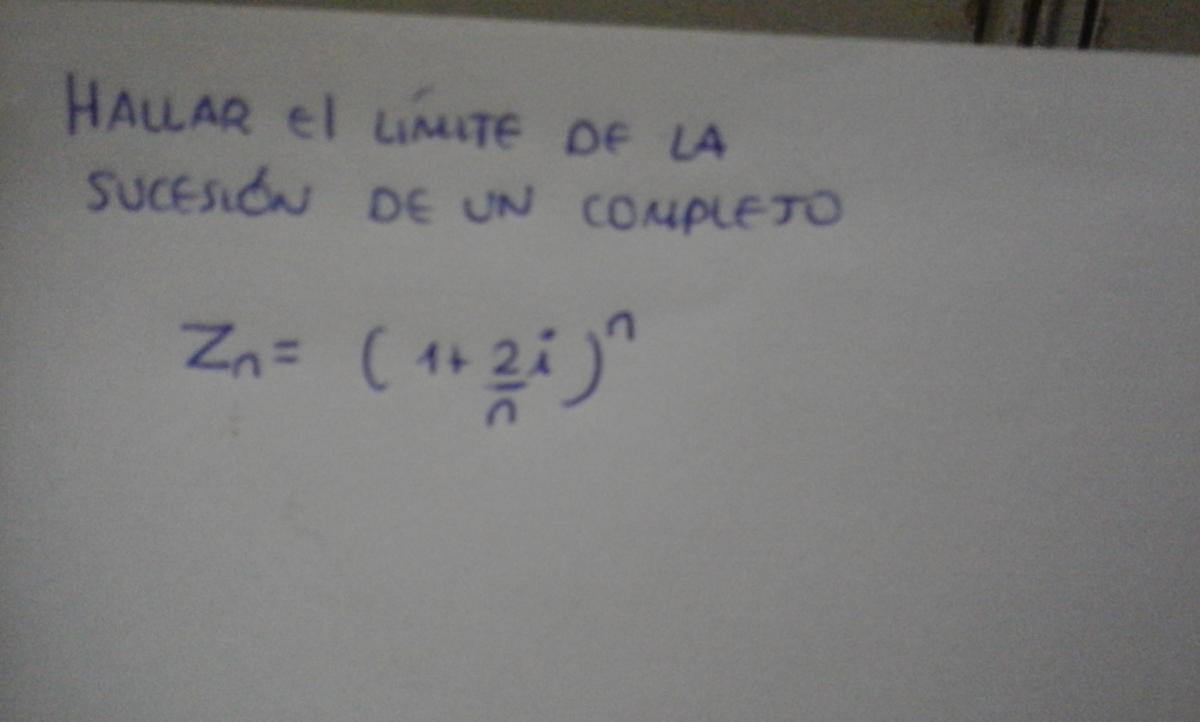 HALLAR el LÍMITE DE LA
SUCESIÓN DE UN COMPLEJO
Zn = ( 1 + 2/n i )^n